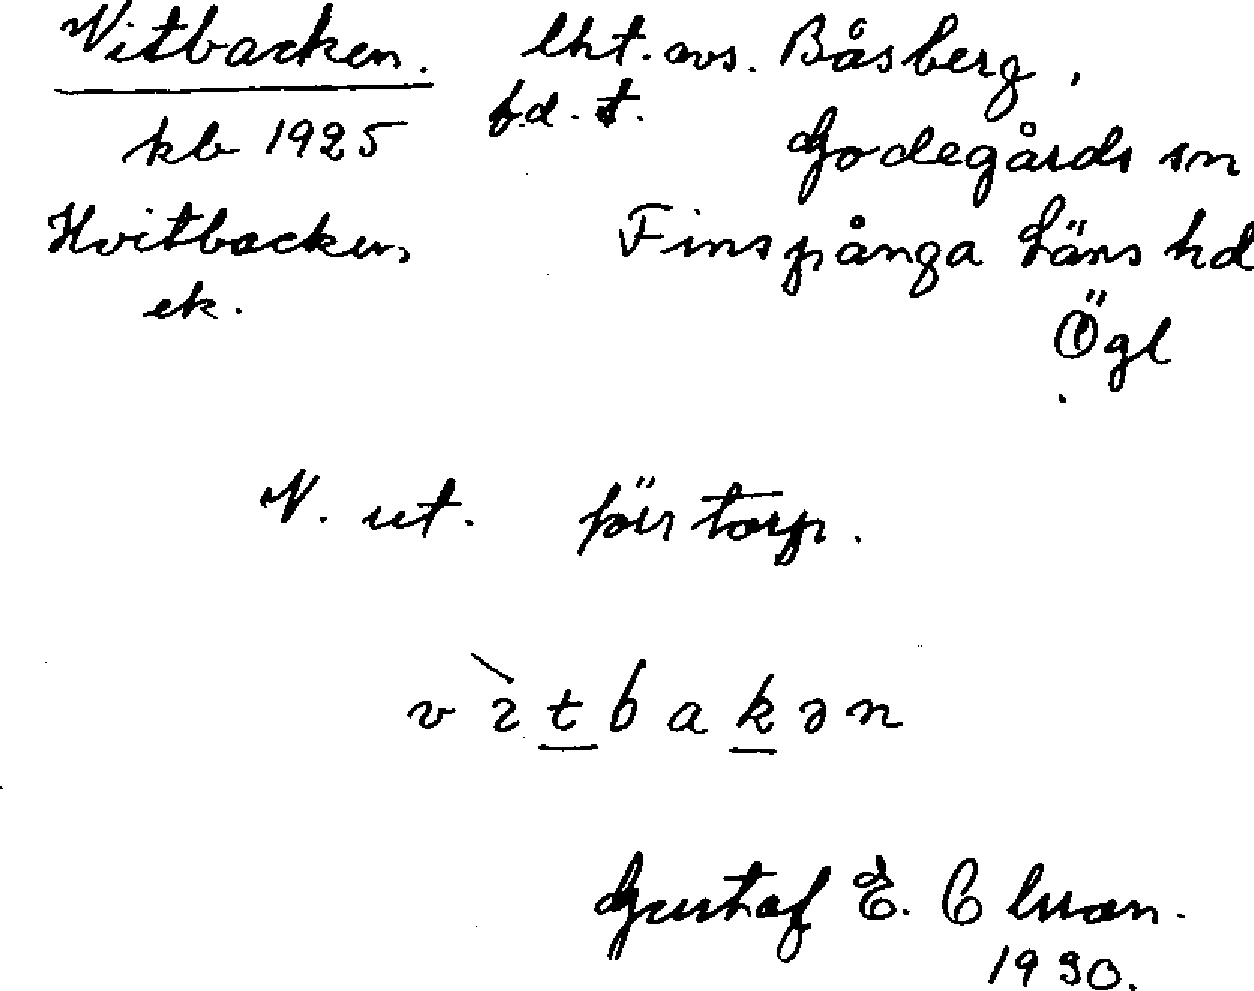 Vitbacken. lht. avs. Båsberg,
kb 1925 f.d. t. Godegårds sn
Hvitbacken Finspånga Läns hd
ek. Ögl
V. ut. för torp.
v ı t b a k ə n
Gustaf E.
1930.